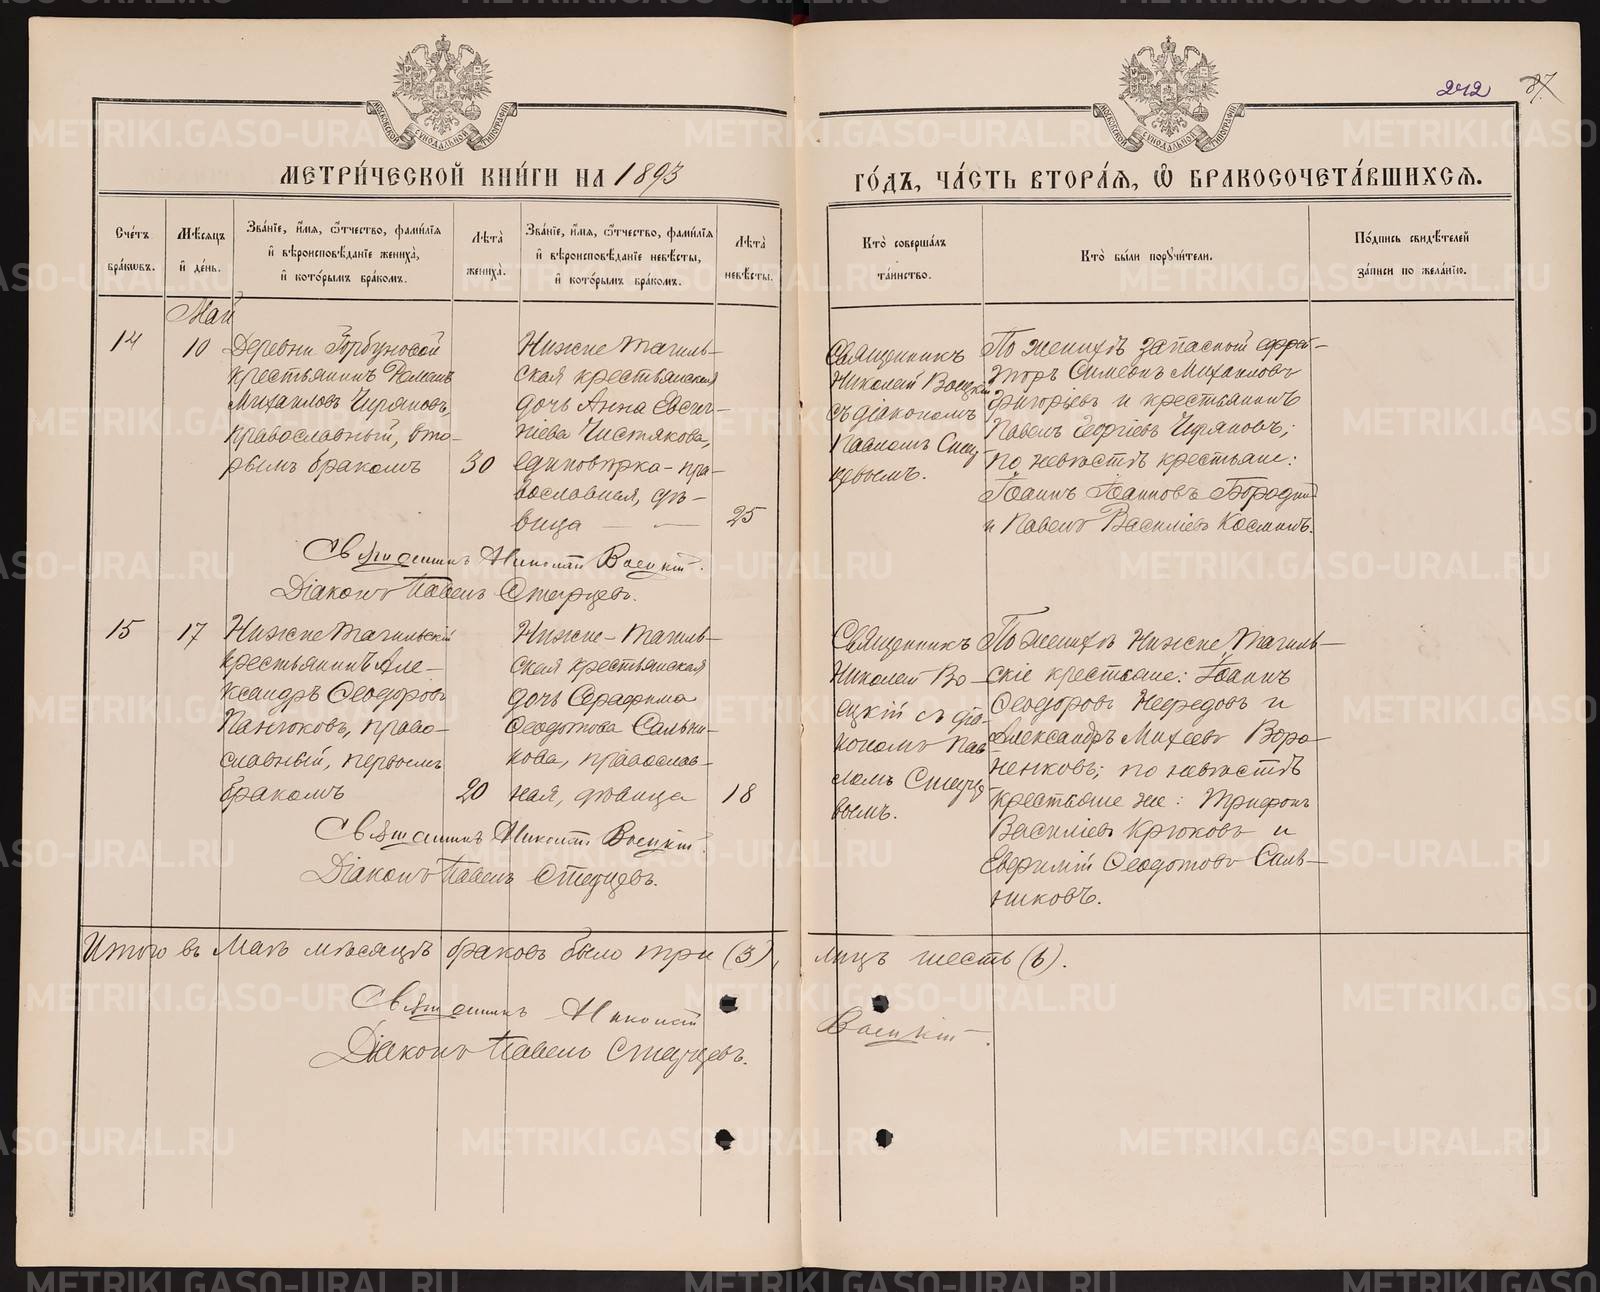 242 37
МЕТРИ́ЧЕСКОЙ КНИ́ГИ НА 1893
ГО́ДЪ, ЧА́СТЬ ВТОРА́Я, Ѽ БРАКОСОЧЕТА́ВШИХСЯ.
Сче́тъ
бра́кѡвъ.
Мѣ́сяцъ
и҆ де́нь.
Зва́нїе, и҆́мя, ѻ҆́тчество, фами́лїя
и҆ вѣроисповѣ́данїе жениха̀,
и҆ кото́рымъ бра́комъ.
Лѣта̀
жениха̀.
Зва́нїе, и҆́мя, ѻ҆́тчество, фами́лїя
и҆ вѣроисповѣ́данїе невѣ́сты,
и҆ кото́рымъ бра́комъ.
Лѣта̀
невѣ́сты.
Кто̀ соверша́лъ
та́инство.
Кто̀ бы́ли порꙋчи́тели.
По́дпись свидѣ́телей
за́писи по жела́нїю.
Май
14
10
Деревни Горбуновой
крестьянинъ Романъ
Михаиловъ Черяновъ,
православный, вто-
рымъ бракомъ
30
Нижне Тагиль-
ская крестьянская
дочь Анна Евсиг-
неева Чистякова,
единовѣрка - пра-
вославная, дѣ-
вица
25
Священникъ
Николай Воецкій
съ діакономъ
Павломъ Стар
цевымъ.
По женихѣ запасный ефрей-
торъ Симеонъ Михаиловъ
Григорьевъ и крестьянинъ
Павелъ Георгіевъ Черяновъ;
по невѣстѣ крестьяне:
Іоаннъ Іоанновъ Бородинъ
и Павелъ Василіевъ Косминъ.
Священникъ Николай Воецкій.
Діаконъ Павелъ Старцевъ.
15
17
Нижне Тагильскій
крестьянинъ Але-
ксандръ Ѳеодоровъ
Панюковъ, право-
славный, первымъ
бракомъ
20
Нижне-Тагиль-
ская крестьянская
дочь Серафима
Ѳеодотова Сальни-
кова, православ-
ная, дѣвица
18
Священникъ
Николай Во-
ецкій съ діа-
кономъ Пав-
ломъ Старце
вымъ.
По женихѣ Нижне Тагиль-
скіе крестьяне: Іоаннъ
Ѳеодоровъ Нефедовъ и
Александръ Михеевъ Воро-
ненковъ; по невѣстѣ
крестьяне же: Трифонъ
Василіевъ Крюковъ и
Евфимій Ѳеодотовъ Саль-
никовъ.
Священникъ Николай Воецкій.
Діаконъ Павелъ Старцевъ.
Итого въ Маѣ мѣсяцѣ браковъ было три (3), лицъ шесть (6).
Священникъ Николай Воецкій.
Діаконъ Павелъ Старцевъ.
METRIKI.GASO-URAL.RU